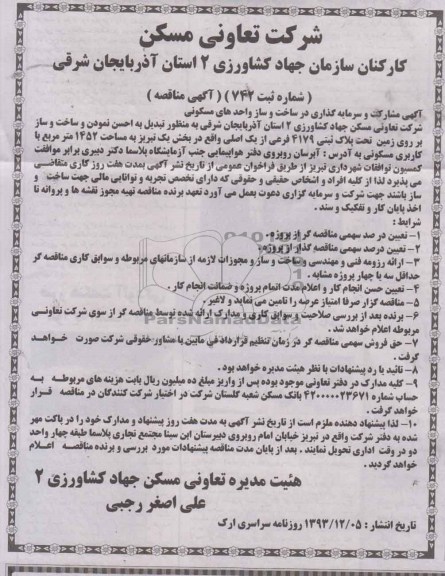 شرکت تعاونی مسکن
کارکنان سازمان جهاد کشاورزی ۲ استان آذربایجان شرقی
( شماره ثبت ۷۴۲ ) ( آگهی مناقصه )
آگهی مشارکت و سرمایه گذاری در ساخت و ساز واحد های مسکونی
شرکت تعاونی مسکن جهاد کشاورزی ۲ استان آذربایجان شرقی به منظور تبدیل به احسن نمودن و ساخت و ساز
بر روی زمین تحت پلاک ثبتی ۴۱۷۹ فرعی از یک اصلی واقع در بخش یک تبریز به مساحت ۱۴۵۲ متر مربع با
کاربری مسکونی به آدرس : آبرسان روبروی دفتر هواپیمایی جنب آزمایشگاه پلاسما دکتر دبیری برابر موافقت
کمسیون توافقات شهرداری تبریز از طریق فراخوان عمومی از تاریخ نشر آگهی بمدت هفت روز کاری متقاضی
می پذیرد لذا از کلیه افراد و اشخاص حقیقی و حقوقی که دارای تخصص تجربه و توانایی مالی جهت ساخت و
ساز باشند جهت شرکت و سرمایه گزاری دعوت بعمل می آورد تعهد برنده مناقصه تهیه مجوز نقشه ها و پروانه تا
اخذ پایان کار و تفکیک و سند .
شرایط :
۱- تعیین در صد سهمی مناقصه گر از پروژه.
۲- تعیین درصد سهمی مناقصه گذار از پروژه.
۳- ارائه رزومه فنی و مهندسی و ساخت و ساز و مجوزات لازمه از سازمانهای مربوطه و سوابق کاری مناقصه گر
حداقل سه یا چهار پروژه مشابه .
۴- تعیین حسن انجام کار و اعلام مدت اتمام پروژه و ضمانت انجام کار.
۵- مناقصه گزار صرفا امتیاز عرصه را تامین می نماید و لاغیر .
۶- برنده بعد از بررسی صلاحیت و سوابق کاری و مدارک ارائه شده توسط مناقصه گر از سوی شرکت تعاونی
مربوطه اعلام خواهد شد .
۷- حق فروش سهمی مناقصه گر در زمان تنظیم قرارداد فی مابین با مشاور حقوقی شرکت صورت خواهد
گرفت .
۸- تائید یا رد پیشنهادات با نظر هیئت مدیره خواهد بود .
۹- کلیه مدارک در دفتر تعاونی موجود بوده پس از واریز مبلغ ده میلیون ریال بابت هزینه های مربوطه به
حساب شماره ۴۲۰۰۰۰۰۲۳۶۷۱ بانک مسکن شعبه گلستان شرکت در اختیار شرکت کنندگان در مناقصه قرار
خواهد گرفت .
۱۰- لذا پیشنهاد دهنده ملزم است از تاریخ نشر آگهی به مدت هفت روز پیشنهاد و مدارک خود را در پاکت مهر
شده به دفتر شرکت واقع در تبریز خیابان امام روبروی دبیرستان ابن سینا مجتمع تجاری پلاسما طبقه چهار واحد
دو در وقت اداری تحویل نمایند . بعد از پایان مدت مناقصه پیشنهادات مورد بررسی و برنده مناقصه اعلام
خواهد گردید .
هئیت مدیره تعاونی مسکن جهاد کشاورزی ۲
علی اصغر رجبی
تاریخ انتشار : ۱۳۹۳/۱۲/۰۵ روزنامه سراسری ارک
ParsNamadData